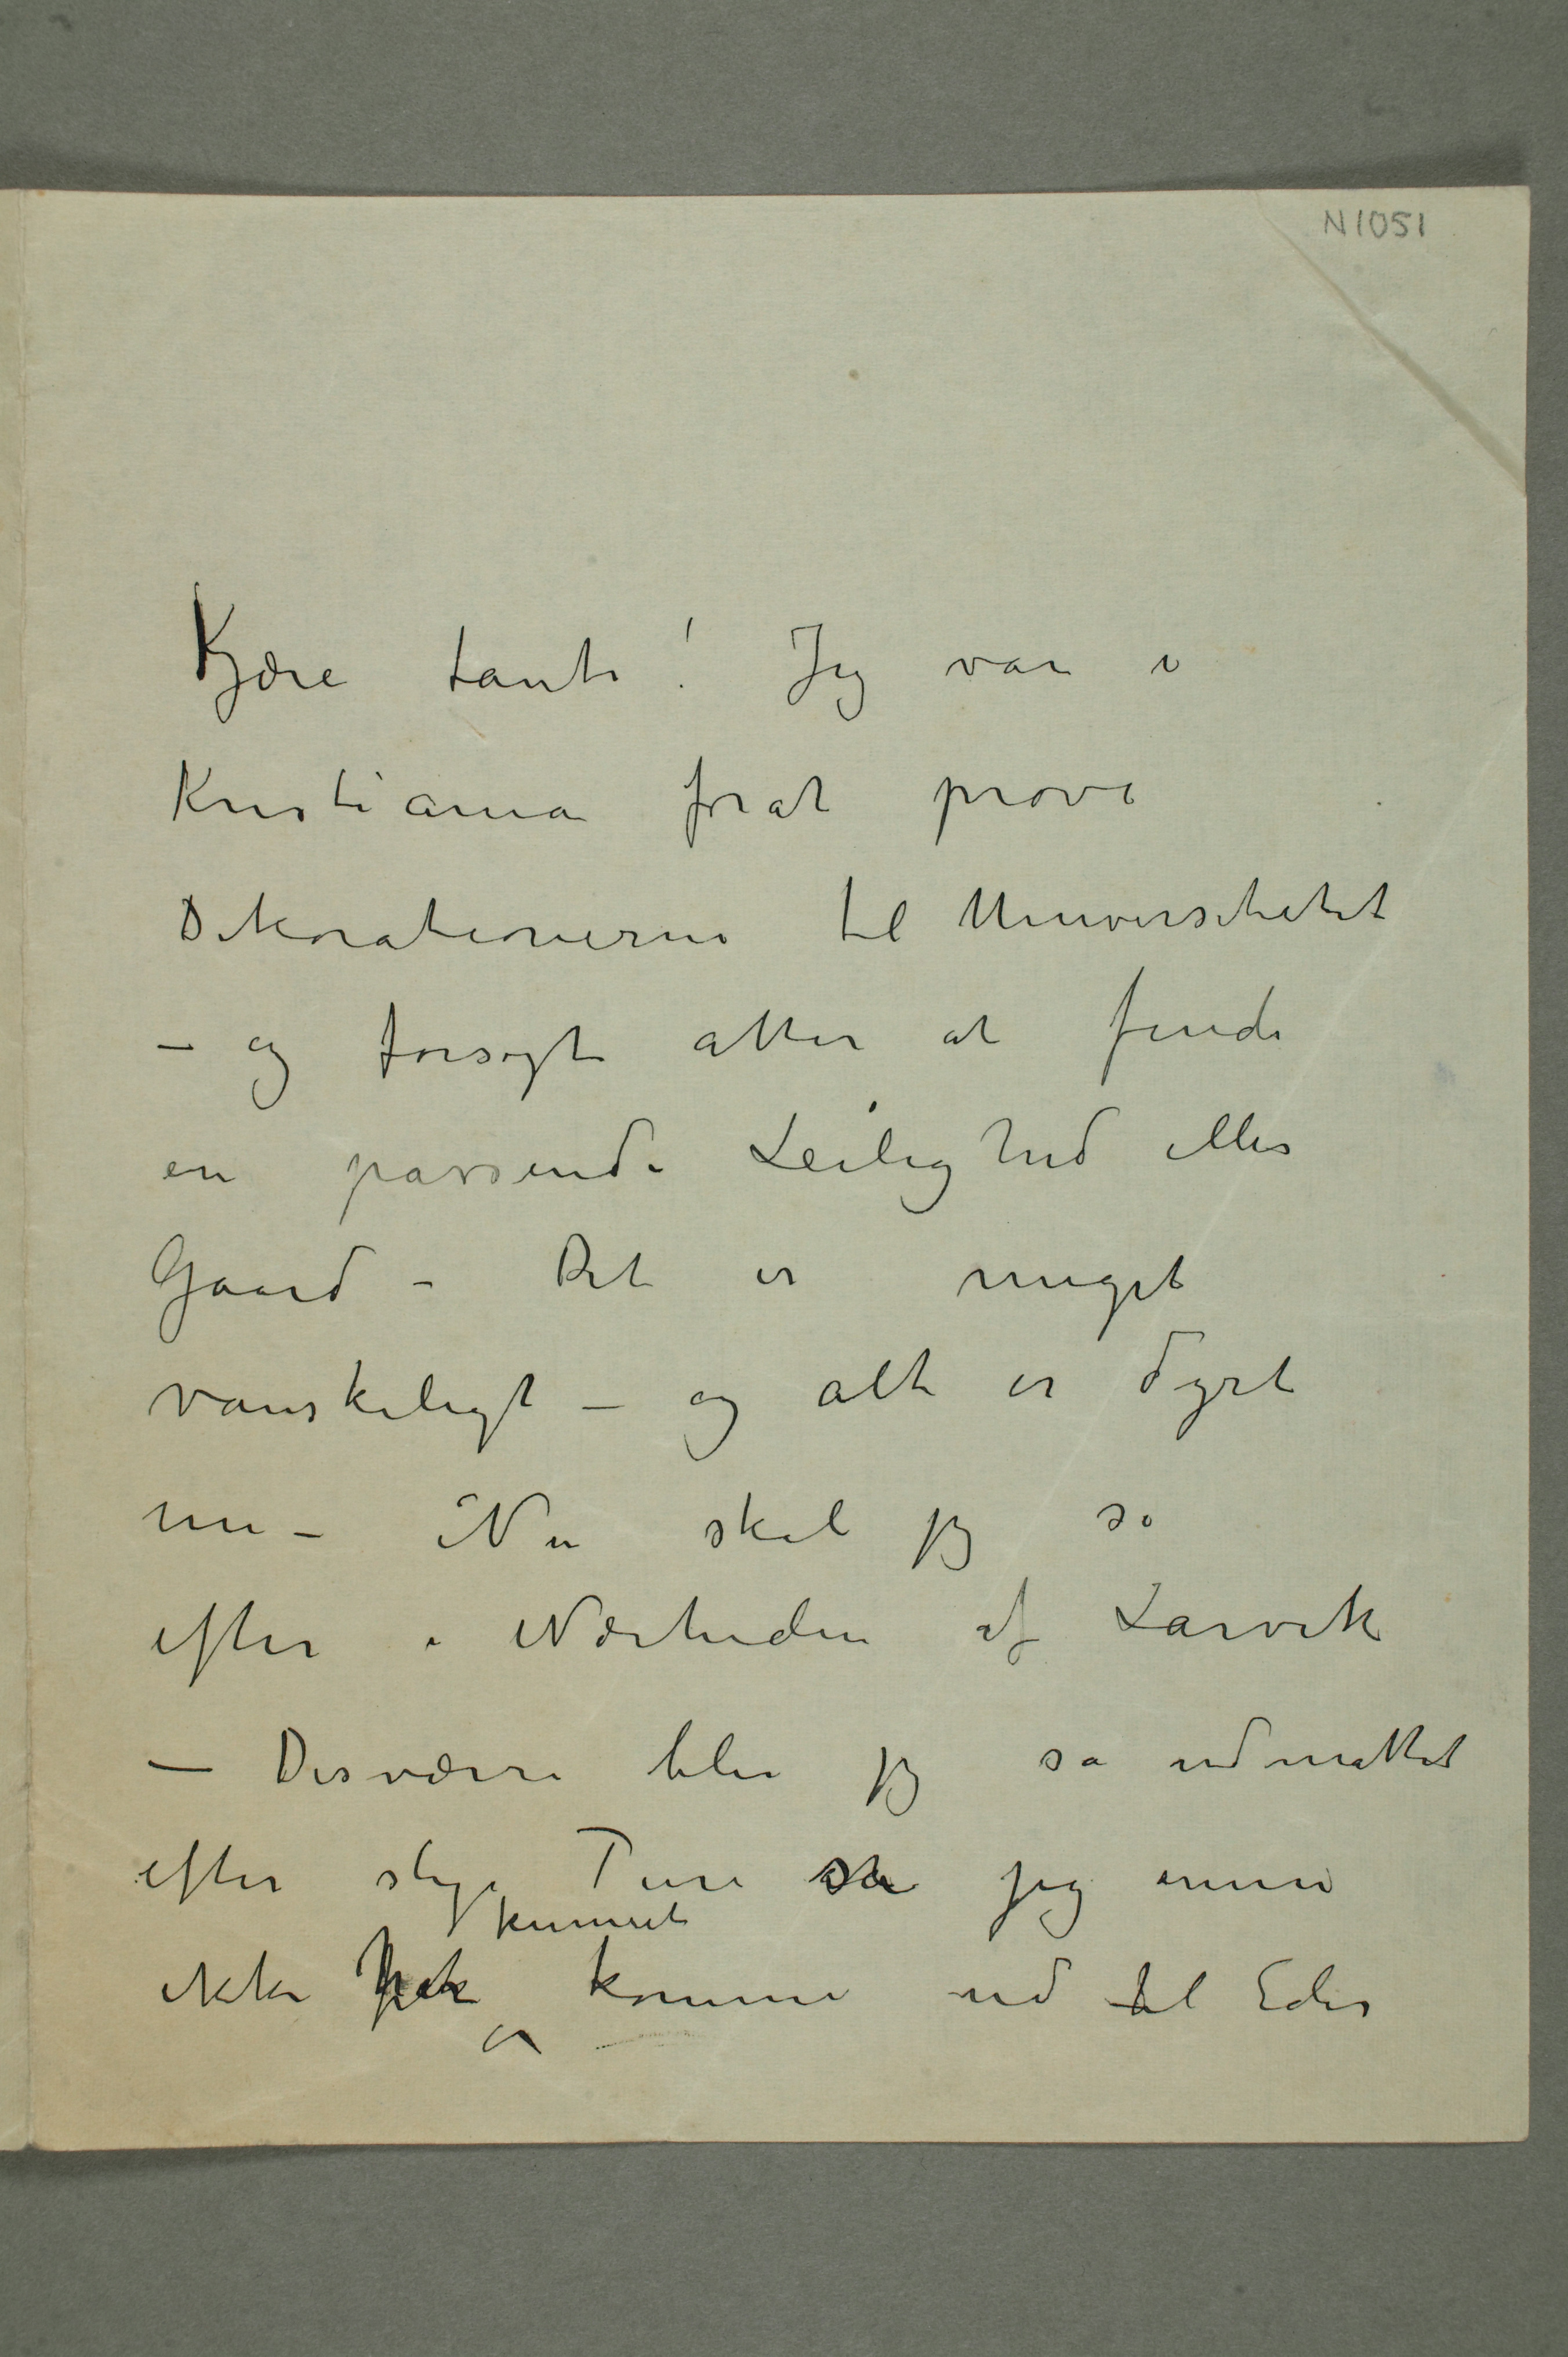 N1051
Kjære tante! Jeg var i
Kristiania forat prøve
Dekorationerne til Universitetet
– og forsøgte atter at finde
en passende Leilighed eller
Gaard – Det er meget
vanskeligt – og alt er dyrt
nu – Nu skal jeg se
efter i Nærheden af Larvik
– Desværre blir jeg så udmattet
efter slige Ture så jeg ennu
kunnet
ikke har komme ud til Eder